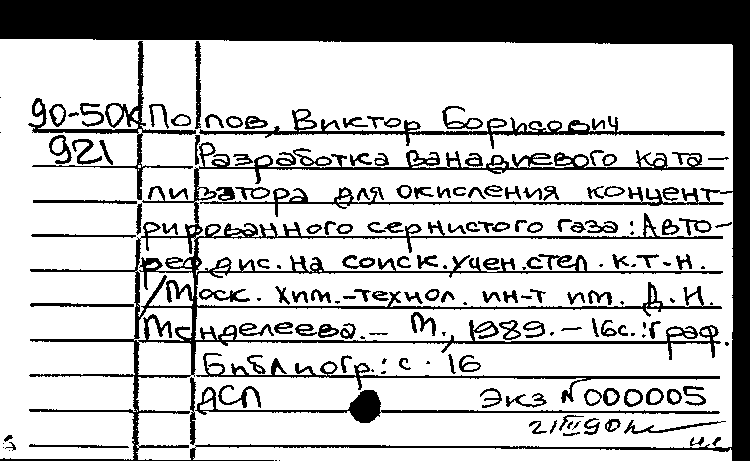 90-50К Попов, Виктор Борисович
921 Разработка ванадиевого ката-
лизатора для окисления концент-
рированного сернистого газа: Авто-
реф. дис. на соиск. учен. степ. к.т.н.
/Моск. хим.-технол. ин-т им. Д.И.
Менделеева. - М., 1989. - 16с.: граф.
Библиогр.: с. 16
ДСП Экз N 000005
21/III 90